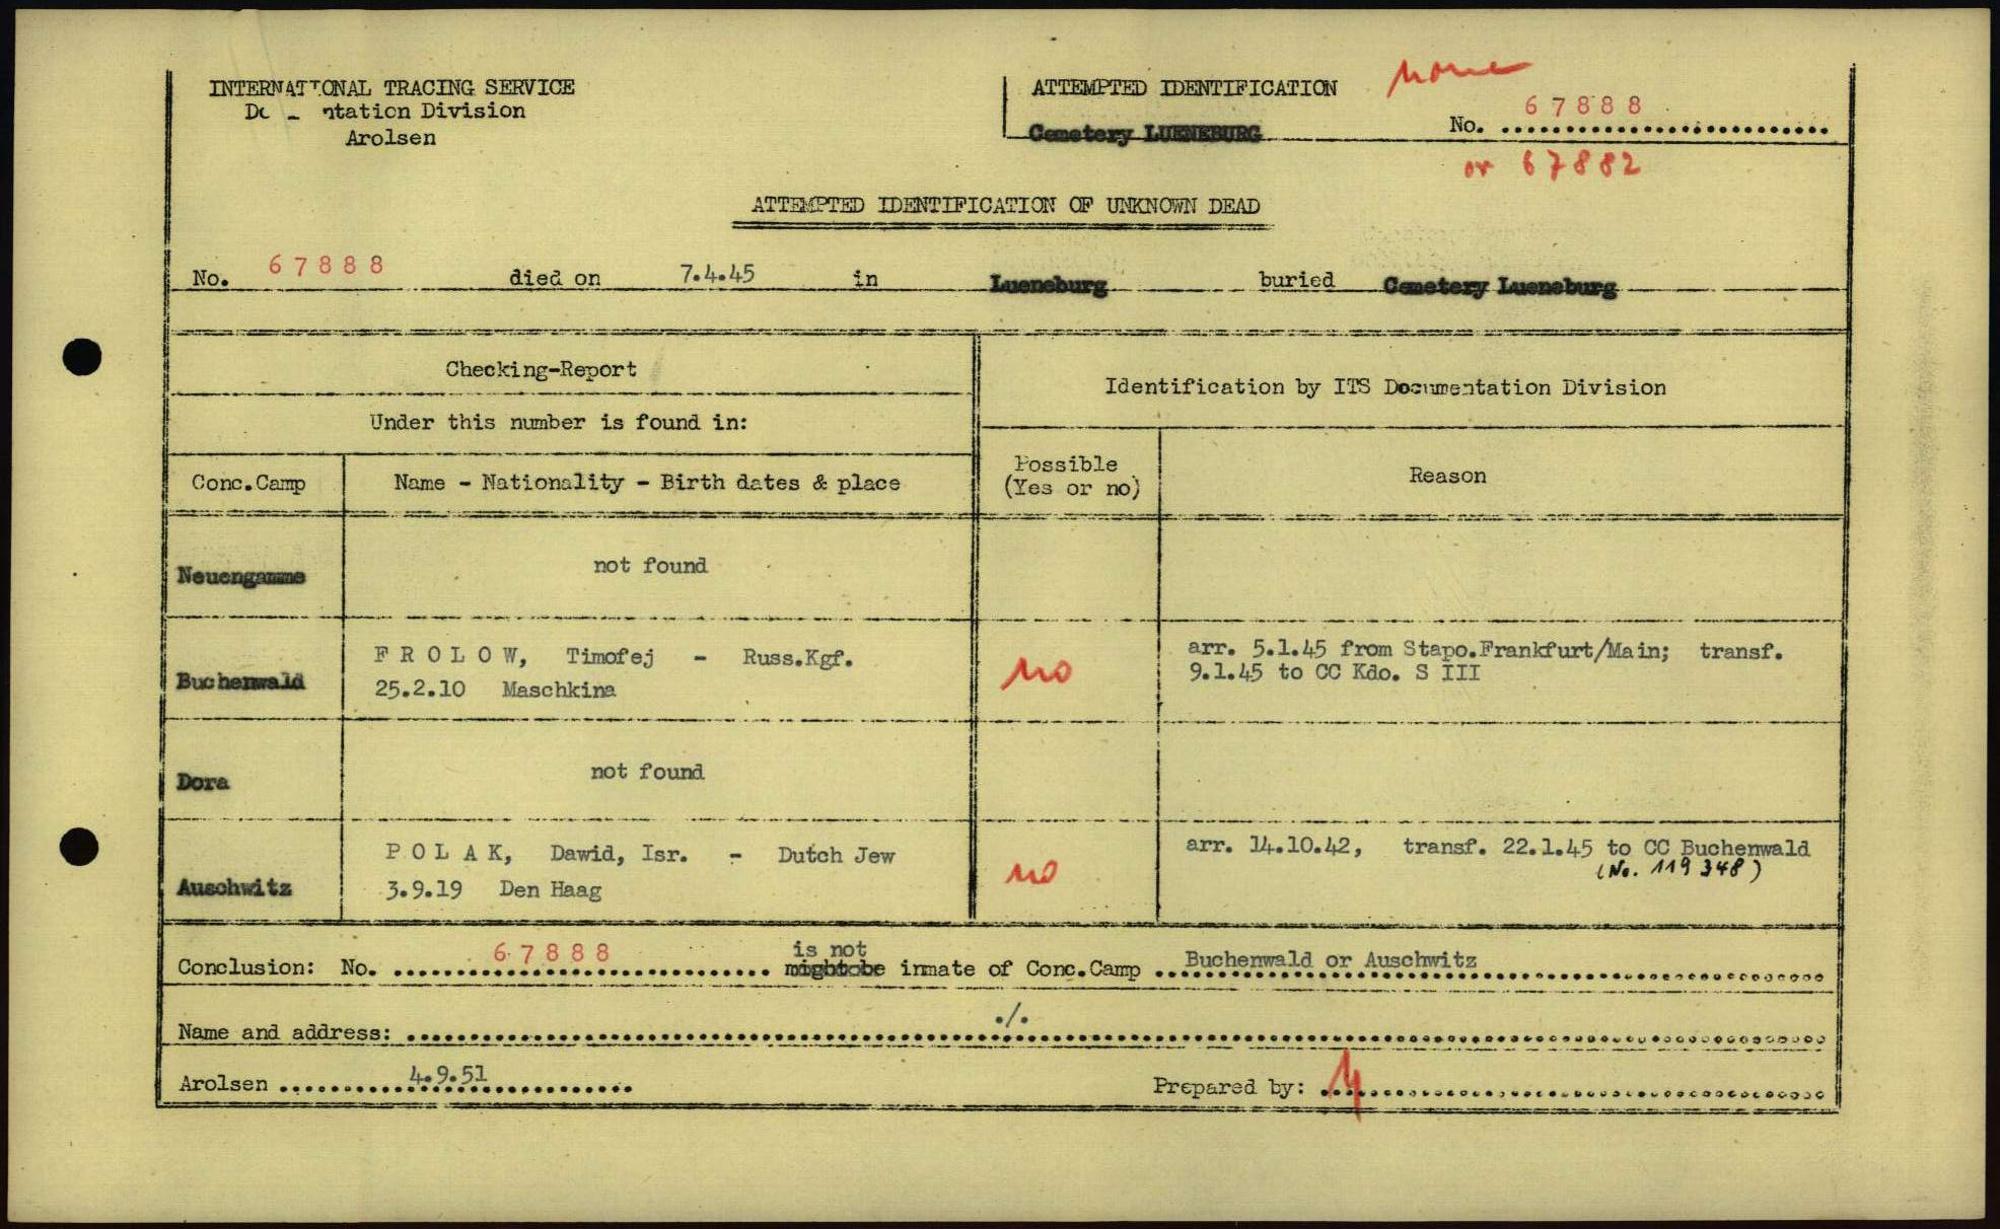 INTERNATIONAL TRACING SERVICE
Division
Arolsen
ATTEMPTED IDENTIFICATION
none
Cemetery LUENEBURG
No. 67888
or 67882
ATTEMPTED IDENTIFICATION OF UNKNOWN DEAD
No. 67888 died on 7.4.45 in Lueneburg buried Cemetery Lueneburg
Checking-Report
Identification by ITS Documentation Division
Under this number is found in:
Conc.Camp
Name - Nationality - Birth dates & place
Possible
(Yes or no)
Reason
Neuengamme
not found
Buchenwald
F R O L O W, Timofej - Russ.Kgf.
25.2.10 Maschkina
no
arr. 5.1.45 from Stapo.Frankfurt/Main; transf.
9.1.45 to CC Kdo. S III
Dora
not found
Auschwitz
P O L A K, Dawid, Isr. - Dutch Jew
3.9.19 Den Haag
no
arr. 14.10.42, transf. 22.1.45 to CC Buchenwald
(No. 119 348)
is not
Conclusion: No. 67888 inmate of Conc.Camp Buchenwald or Auschwitz
Name and address: ./.
Arolsen 4.9.51
Prepared by: